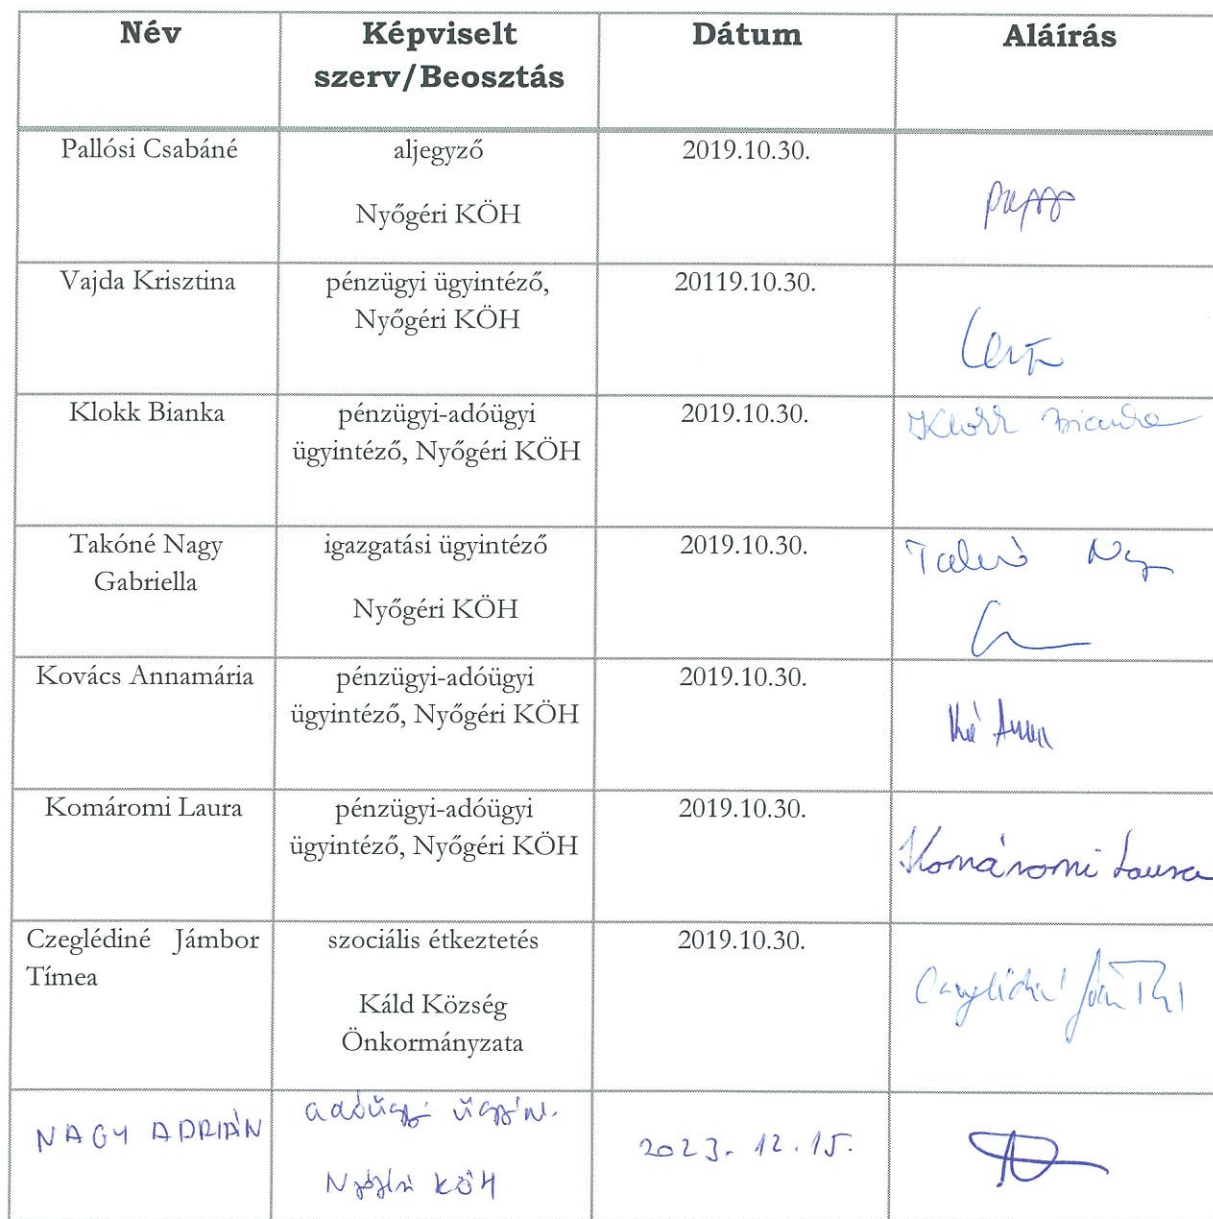 Név
Képviselt
szerv/Beosztás
Dátum
Aláírás
Pallósi Csabáné
aljegyző
Nyőgéri KÖH
2019.10.30.
Vajda Krisztina
pénzügyi ügyintéző,
Nyőgéri KÖH
20119.10.30.
Klokk Bianka
pénzügyi-adóügyi
ügyintéző, Nyőgéri KÖH
2019.10.30.
Klokk Bianka
Takóné Nagy
Gabriella
igazgatási ügyintéző
Nyőgéri KÖH
2019.10.30.
Kovács Annamária
pénzügyi-adóügyi
ügyintéző, Nyőgéri KÖH
2019.10.30.
Komáromi Laura
pénzügyi-adóügyi
ügyintéző, Nyőgéri KÖH
2019.10.30.
Komáromi Laura
Czeglédiné Jámbor
Tímea
szociális étkeztetés
Káld Község
Önkormányzata
2019.10.30.
NAGY ADRIÁN
adóügyi ügyint.
Nyőgéri KÖH
2023.12.15.